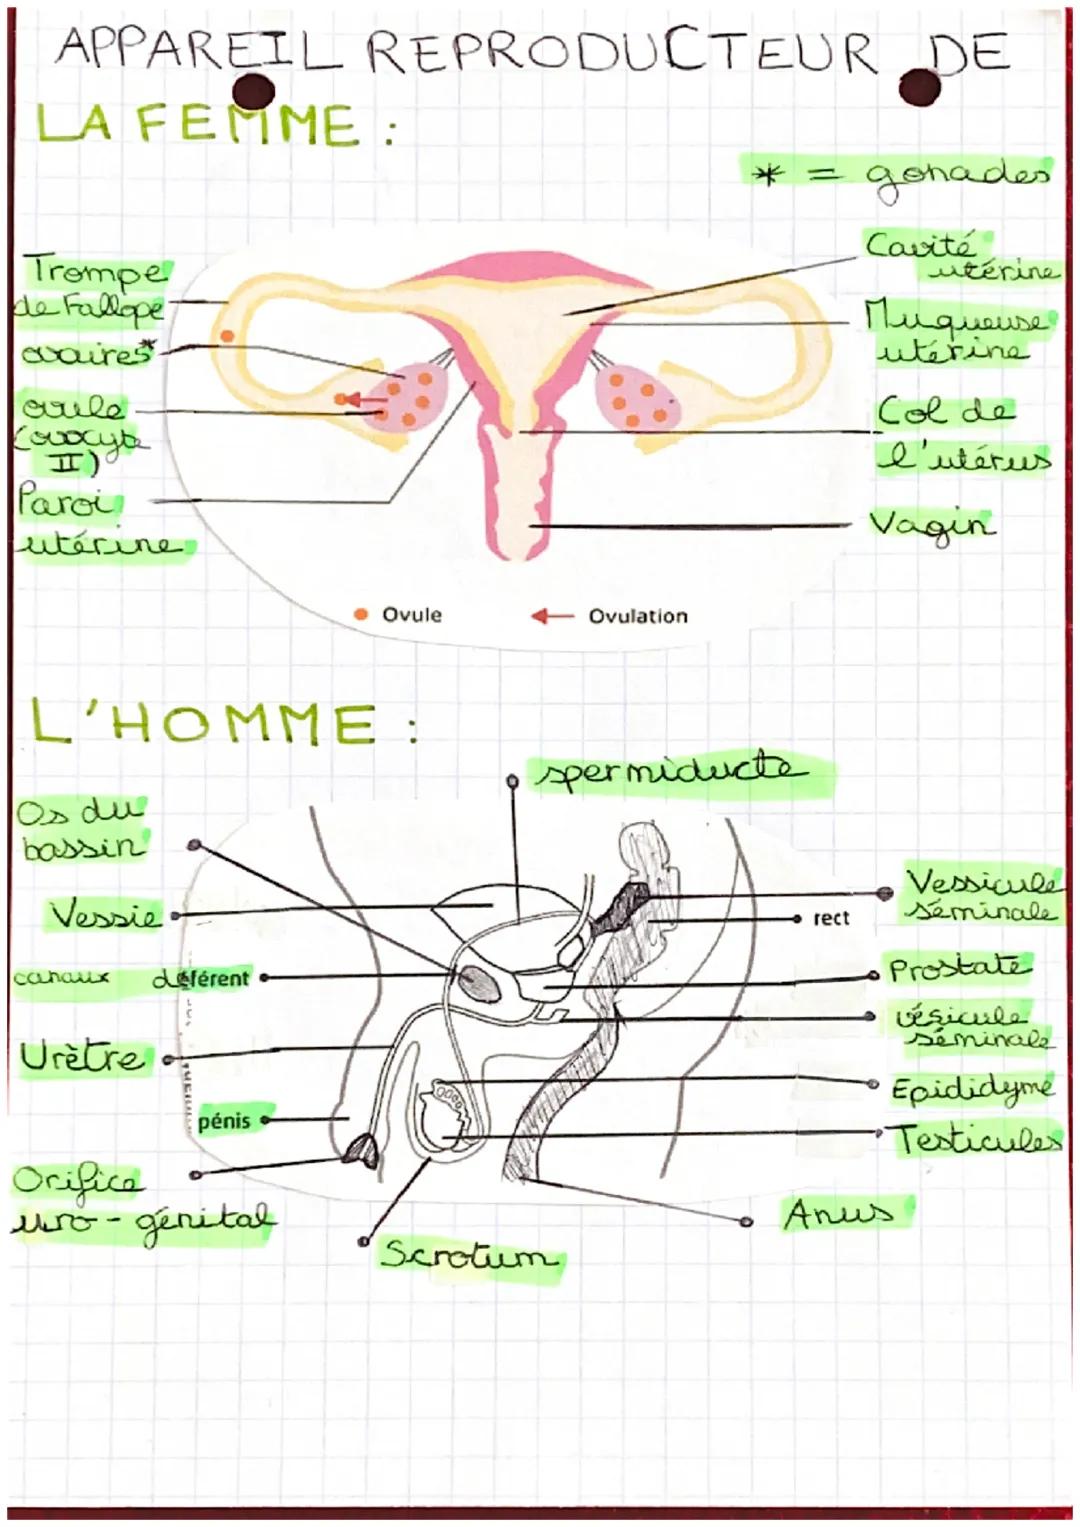 APPAREIL REPRODUCTEUR DE
LA FEMME :
* = gonades
Trompe
de Fallope
ovaires*
ovule
(ovocyte
II)
Paroi
utérine
Cavité
utérine
Muqueuse
utérine
Col de
l'utérus
Vagin
Ovule
Ovulation
L'HOMME :
spermiducte
Os du
bassin
Vessie
canaux déférent
Urètre
pénis
Orifice
uro-génital
Scrotum
Vessicule
séminale
rect
Prostate
vésicule
séminale
Epididyme
Testicules
Anus